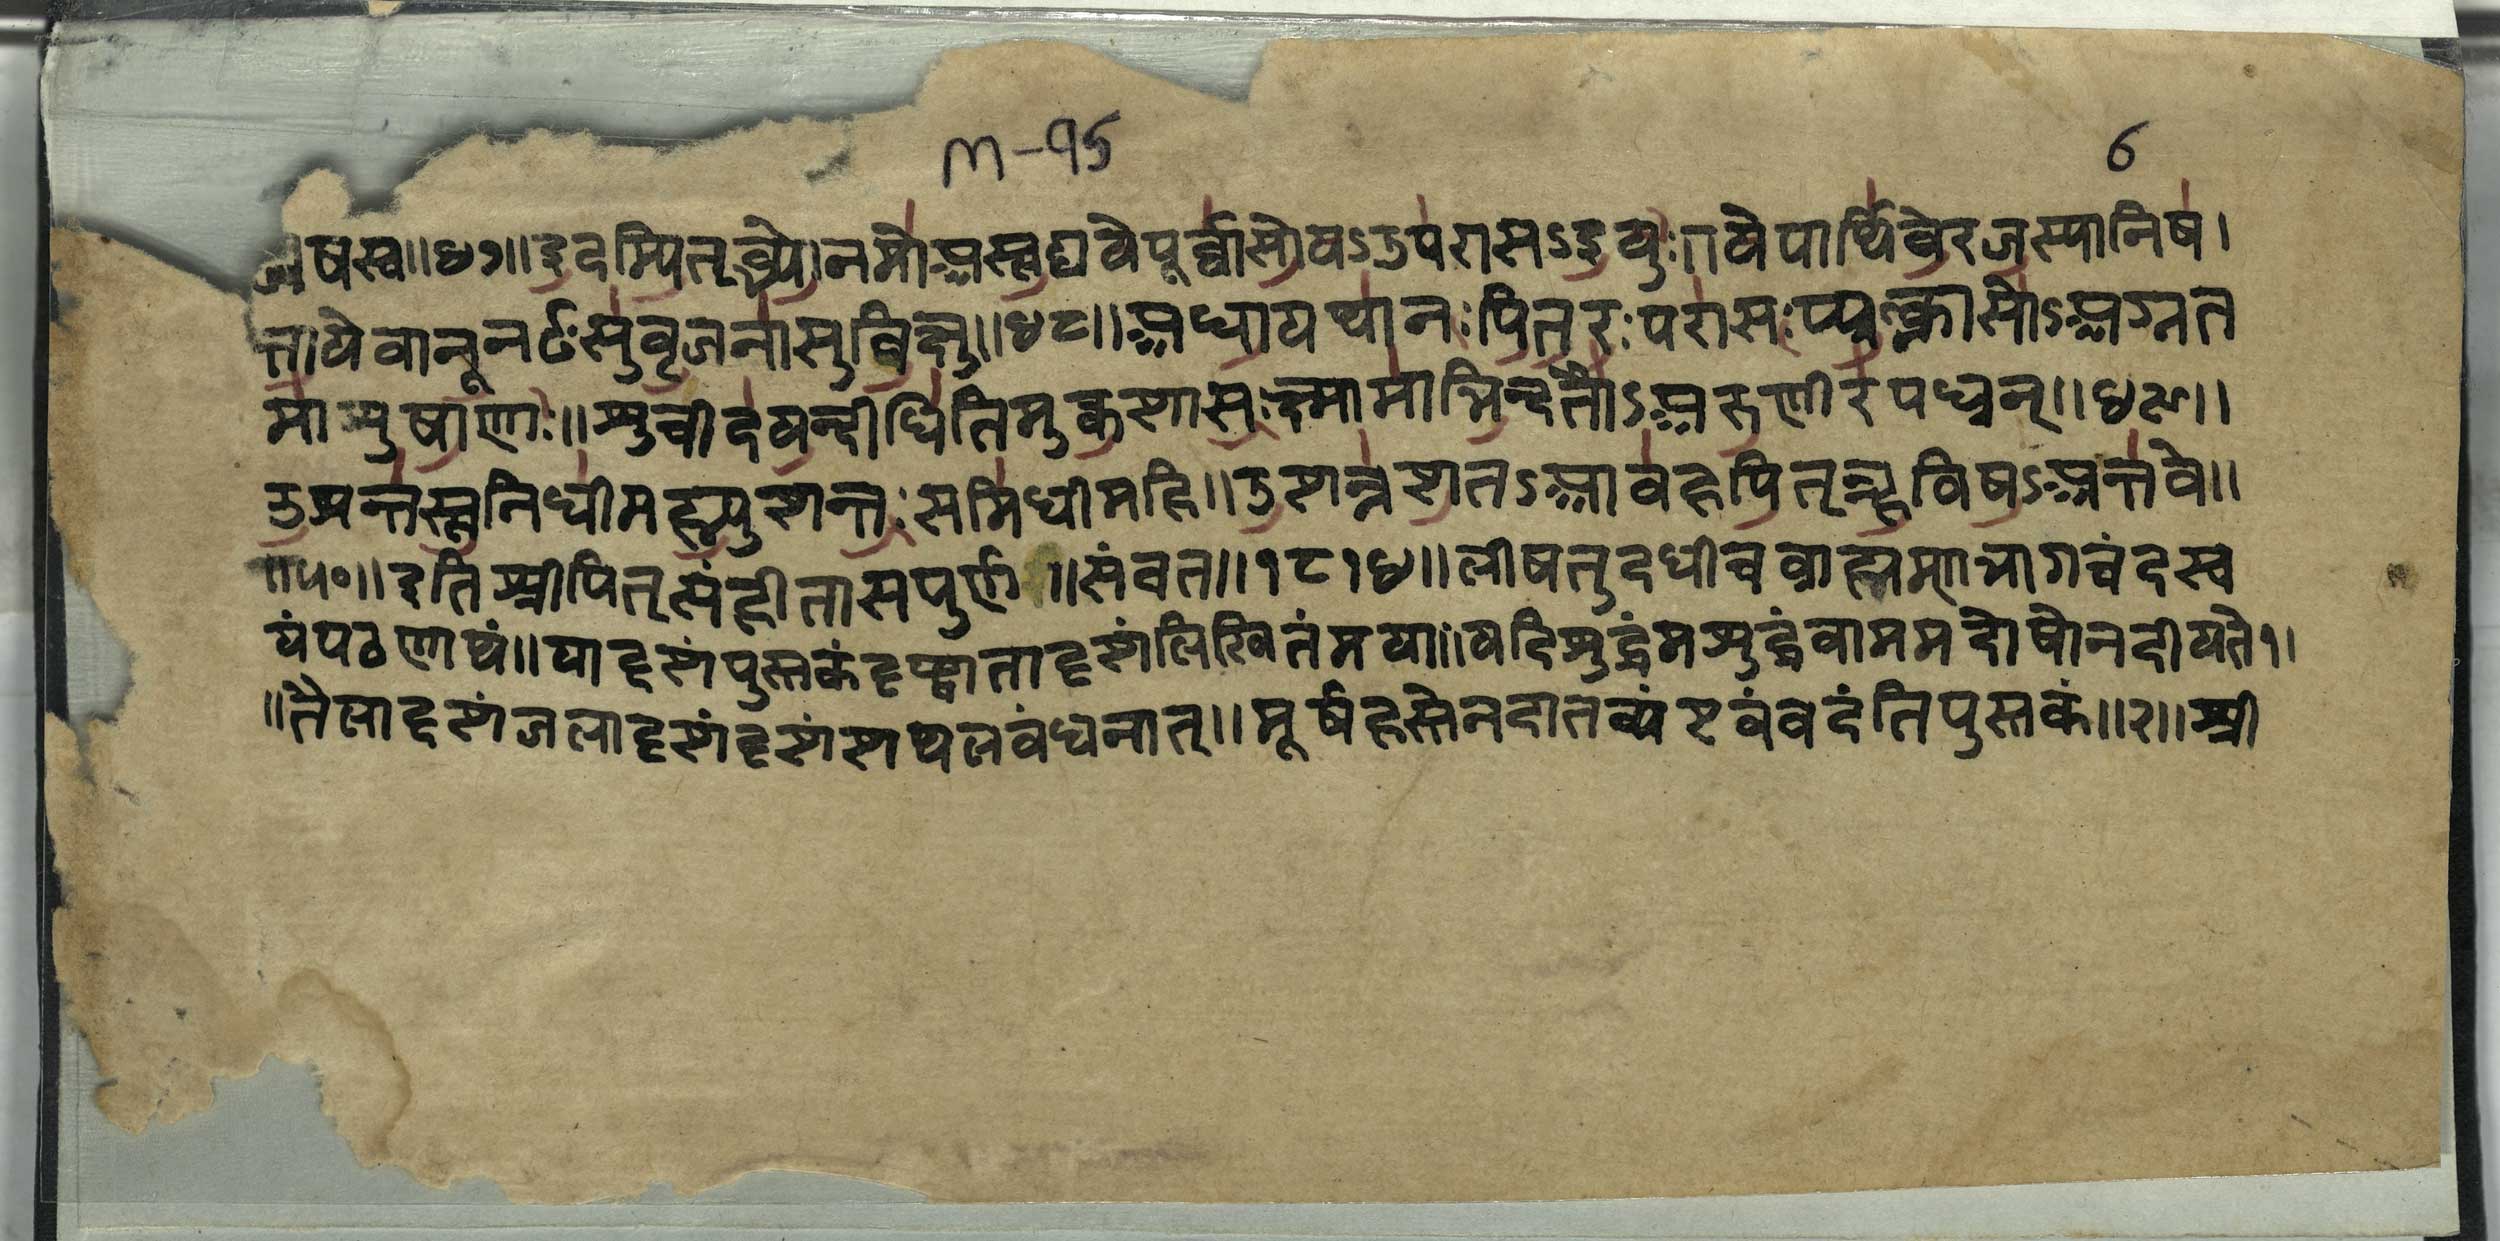 M-95
6
जुषस्व॥४७॥इदम्पितृब्भ्योनमोऽअस्त्वद्यवेपूर्व्वासोयऽउपरासऽइयुः।येपार्थिवेरजस्यानिष।
त्तायेवानूनर्ठःसुवृजनासुविक्षु॥४८॥अधायथानःपितरःपरासःप्प्रत्क्नासोऽअग्नत
माशुषाणाः॥शुचीदयन्दीधितिमुक्थशासःक्ष्मामाभिन्दतोऽअरुणीरपव्रन्॥४९॥
उशन्तस्त्वानिधीमह्युशन्तःसमिधीमहि॥उशन्नशतऽआवहपितॄन्हविषऽअत्तवे॥
॥५०॥इतिश्रीपितृसंहीतासपुर्ण॥संवत॥१८१४॥लीषतुदधीचब्राह्मणप्रागचंदस्व
यंपठणाथं॥यादृशंपुस्तकंदृष्ट्वातादृशंलिखितंमया॥यदिसुद्धंमसुद्धंवाममदोषोनदीयते१॥
॥तैलादृशंजलादृशंदृशंशथलबंधनात्॥मूर्षहस्तेनदातव्यंएवंवदंतिपुस्तकं॥२॥श्री